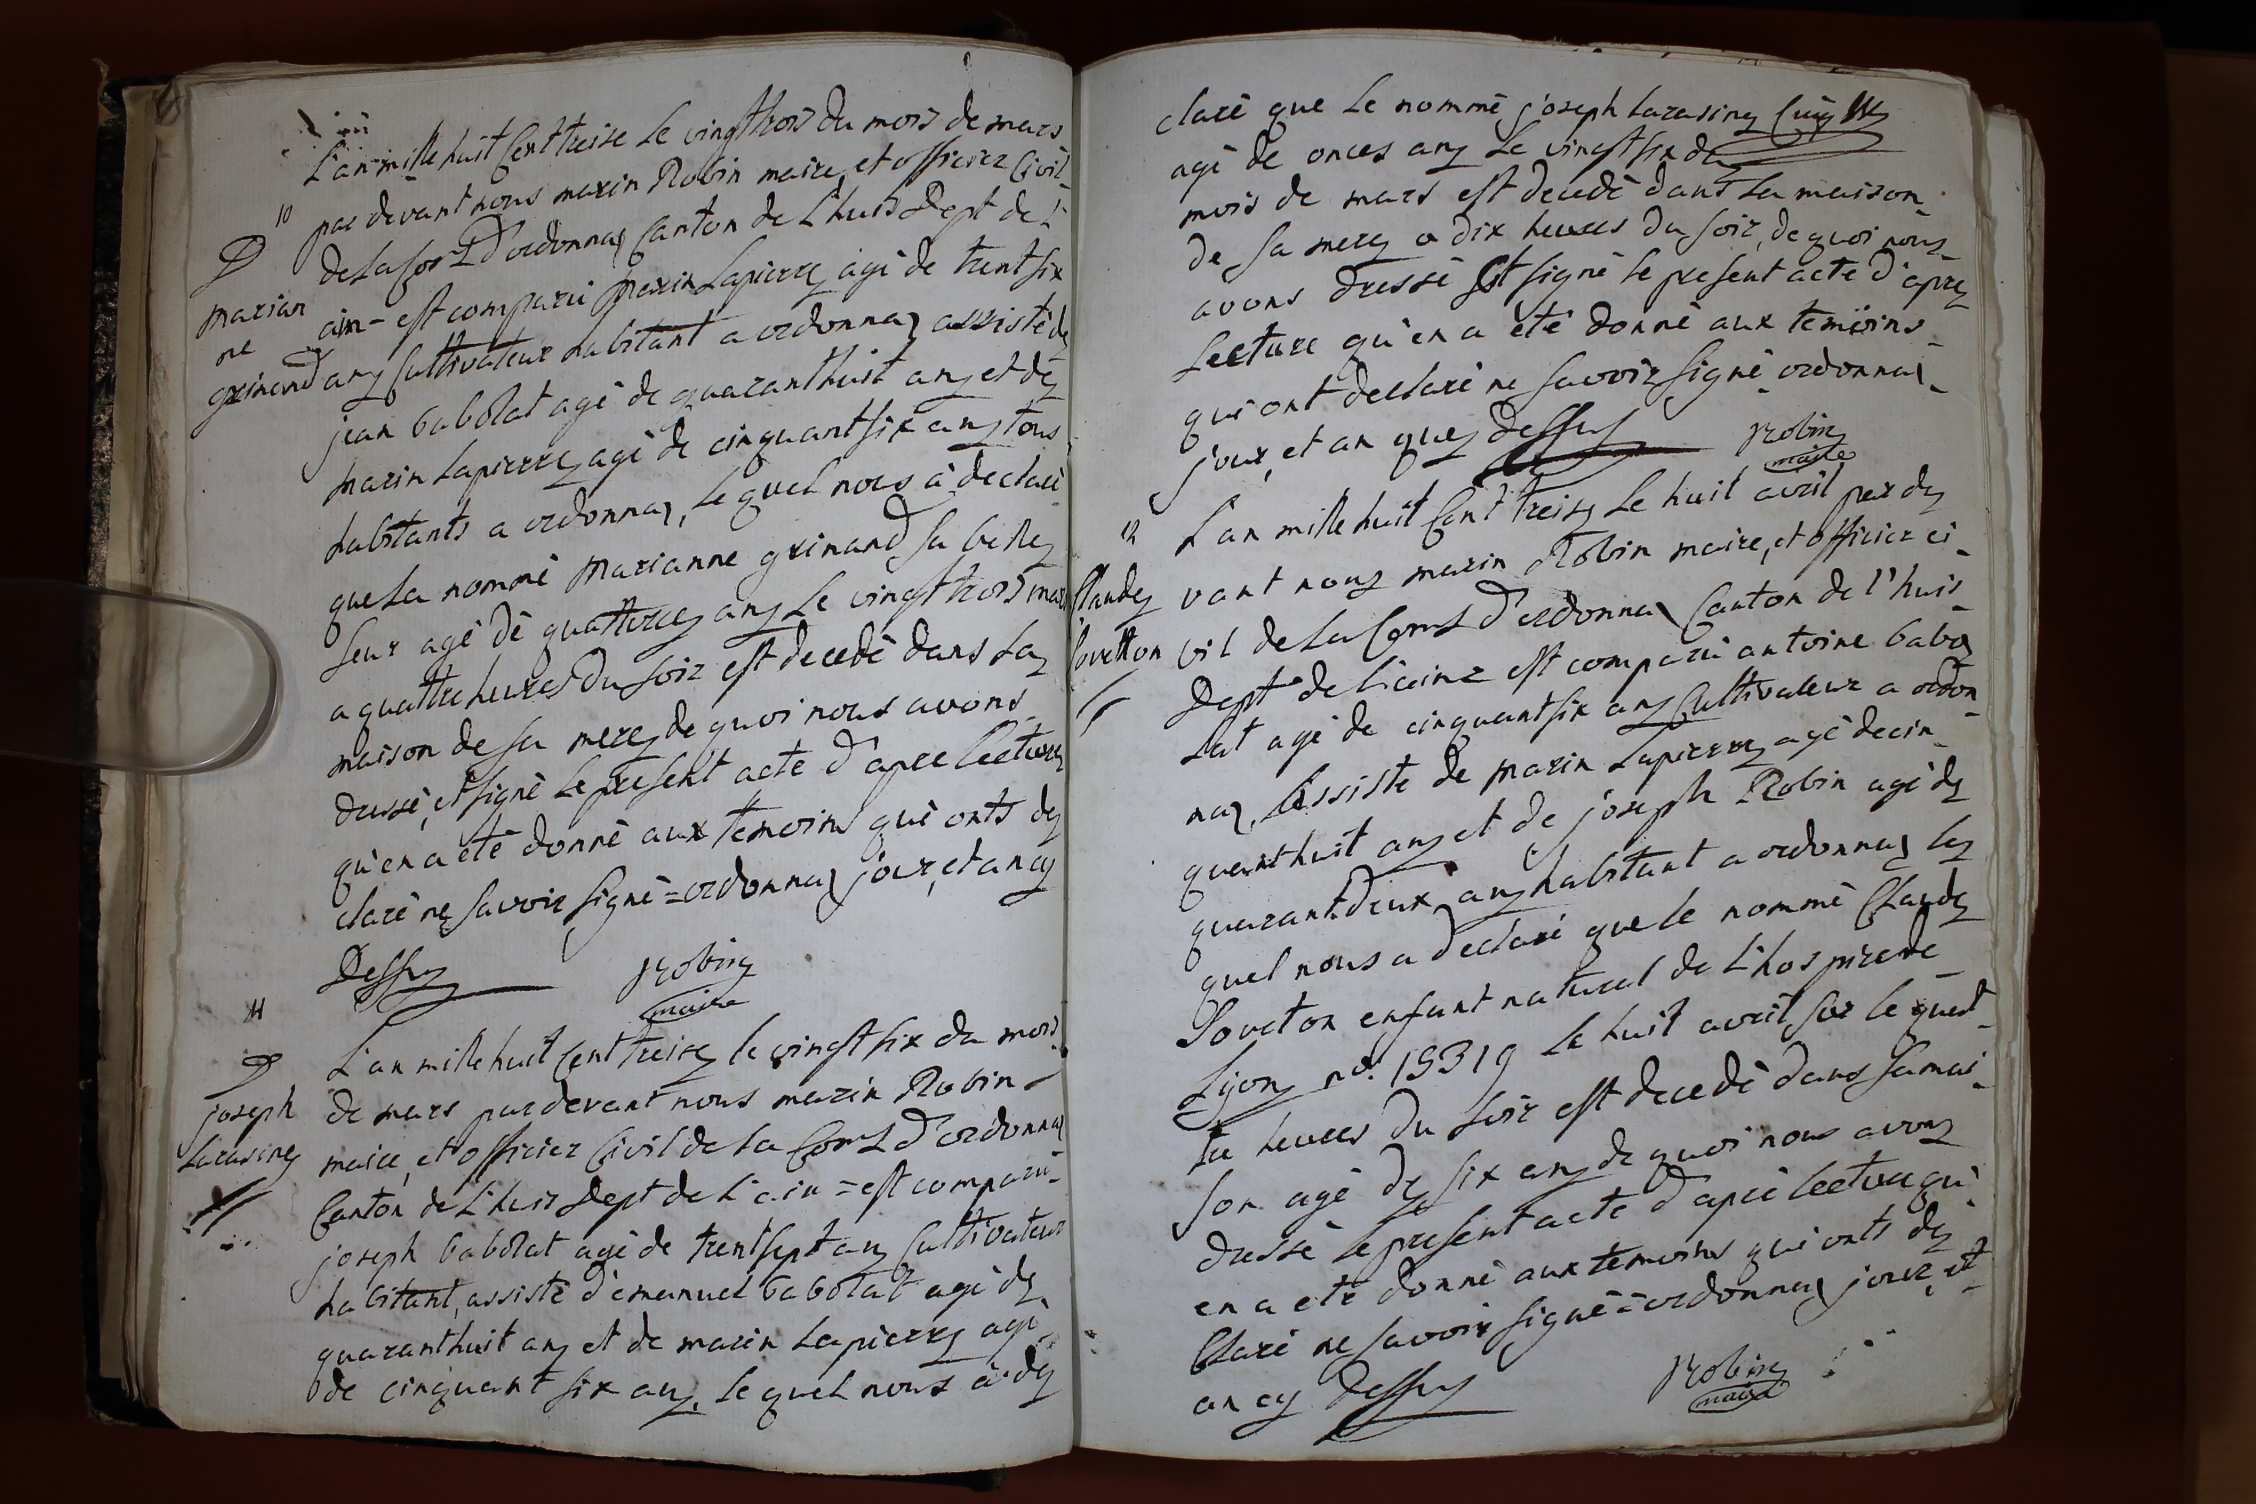 10
D
marian
ne
grinand
L'an mille huit Cent treise Le vingt trois du mois de mars
par devant nous marin Robin maire, et officier Civil
de La Com D'ordonnaz Canton de L'huis Dept de L'
ain - est comparu marin Lapierre agé de trent six
ans Cultivateur habitant a ordonnaz assisté de
jean babolat agé de quarant huit ans et de
marin Lapierre agé de cinquant six ans tous
habitants a ordonnaz, Le quel nous à declaré
que La nommé Marianne grinand sa belle
seur agé dé quattorze ans Le vingt trois mars
a quattre heures Du soir est decedé dans La
maison de sa mere de quoi nous avons
dressé, et signé Le present acte D'apre Lecture
qu'en a eté donné aux temoins qui onts de
claré ne savoir signé = ordonnaz jour, et an cy
Dessus
Robin
maire
11
D
joseph
Larasine
L'an mille huit Cent treise le vingt six du mois
de mars par devant nous marin Robin
maire, et officier Civil de La Com D'ordonnaz
Canton de L'huis Dept de L'ain = est comparu
joseph babolat agé de trent sept ans Cultivateur
habitant, assisté d'emanuel babolat agé de
quarant huit ans et de marin Lapierre agé
de cinquant six ans, Le quel nous à de
claré que Le nommé joseph Larasine
agé de onces ans Le vingt six du
mois de mars est decedé dans La maison
de sa mere a dix heures Du soir, de quoi nous
avons dressé et signé le present acte D'apre
Lecture qu'en a eté donné aux temoins
qui ont declaré ne savoir signé ordonnaz
jour, et an que dessus
Robin
maire
12
Claude
Soutton
L'an mille huit Cent treise Le huit avril par de
vant nous marin Robin maire, et officier ci
vil de La Com D'ordonnaz Canton de L'huis
Dept de L'ain est comparu antoine babo
lat agé de cinquant six ans Cultivateur a ordon
naz, assisté de marin Lapierre agé de cin
quant huit ans et de joseph Robin agé de
quarant deux ans habitant a ordonnaz Le
quel nous a declaré que le nommé Claude
Soutton enfant natural de L'hospice de
Lyon no. 15319 Le huit avril sur le quat
tre heures Du soir est decedé dans sa mai
son agé de six ans de quoi nous avons
dressé Le present acte D'apré Lecture qu'
en a eté donné aux temoins qui onts de
Claré ne savoir signé = ordonnaz jour, et
an cy Dessus
Robin
maire